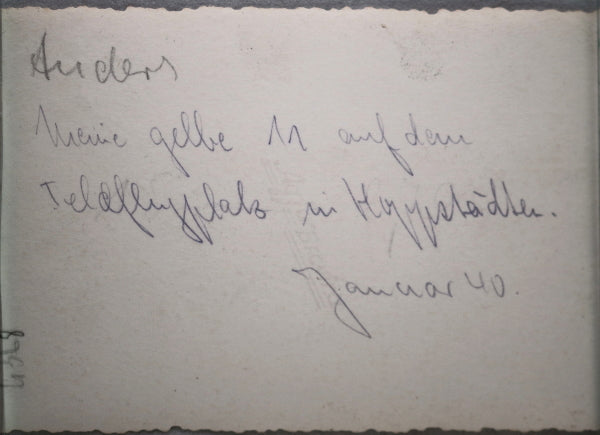 Anders
Meine gelbe 11 auf dem
Feldflugplatz in Hoppstädten.
Januar 40.